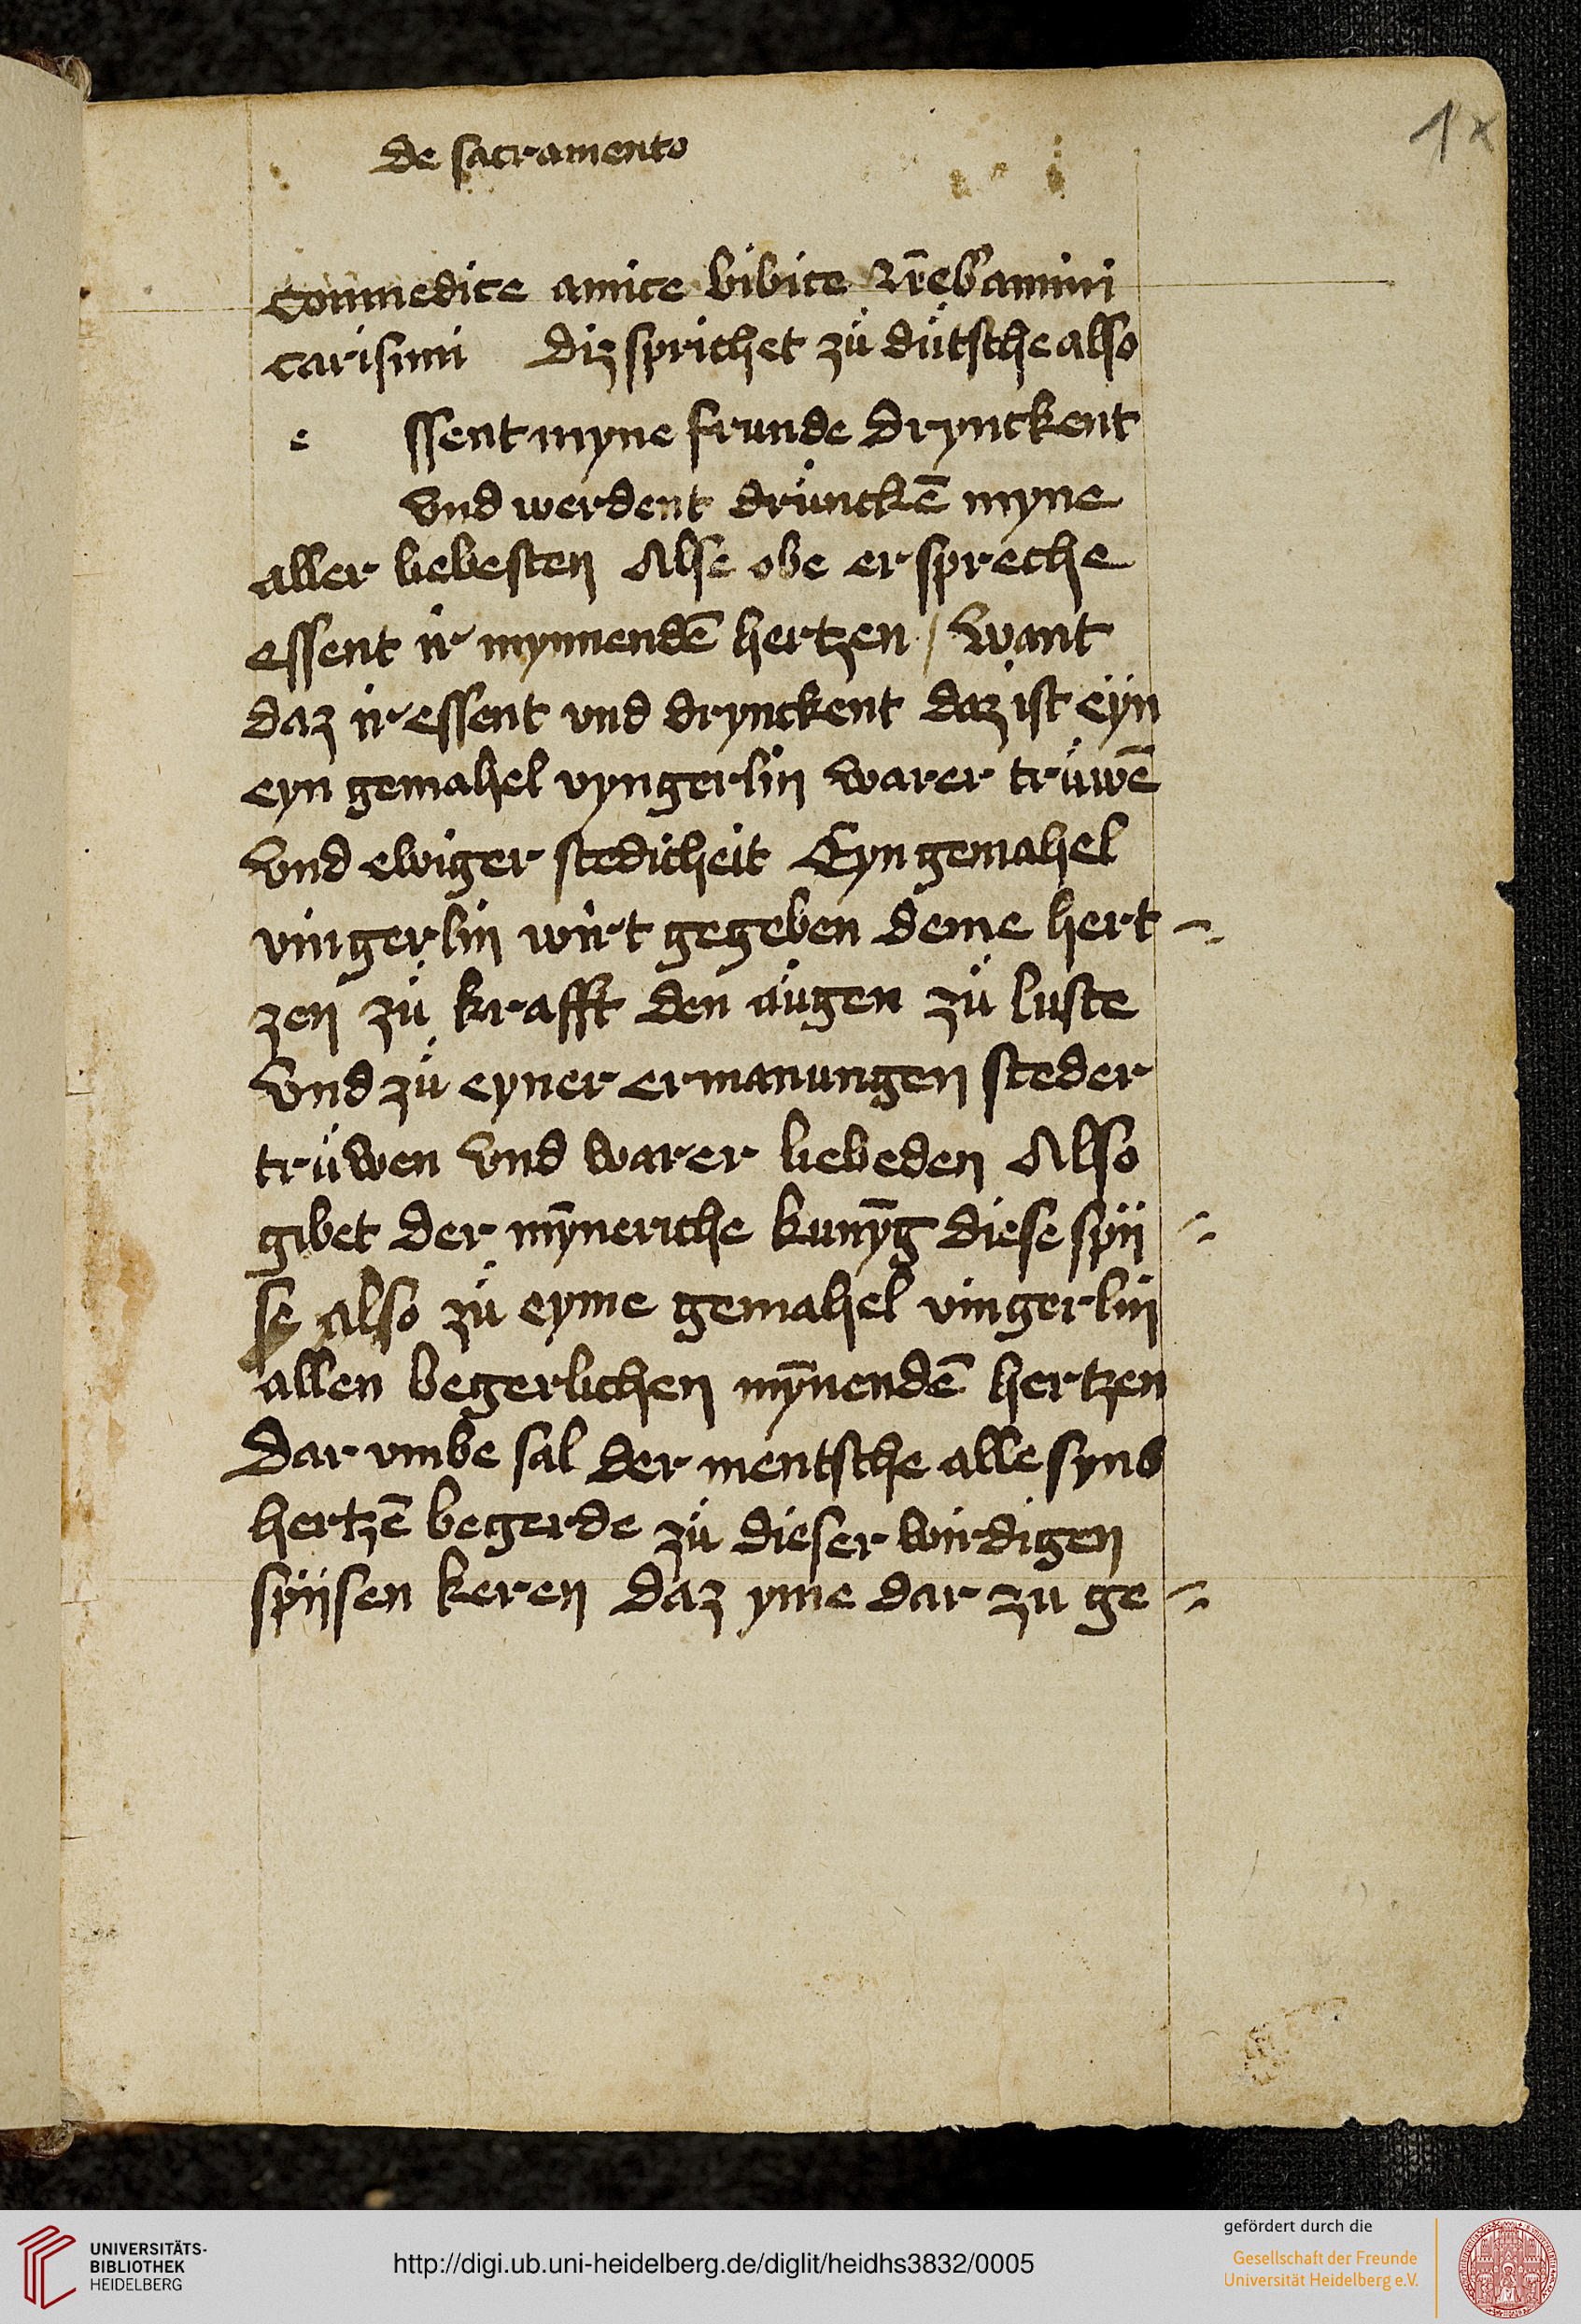 de sacramento
1x
Conmedite amice bibite Inēbamini
carisimi diz sprichet zü dütsche also
e ssent myne frunde drynckent
vnd werdent drünckē myne
aller liebesten Alse obe er spreche
essent ir mynnendē hertzen / want
daz ir essent vnd drynckent daz ist eyn
eyn gemahel vyngerlin warer trüwē
vnd ewiger stedicheit Eyn gemahel
vingerlin wirt gegeben deme hert
zen zü krafft den äugen zü luste
vnd zü eyner ermanungen steder
trüwen vnd warer liebeden Also
gibet der mȳneriche kunyg diese spii
se also zü eyme gemahel vingerlin
allen begerlichen mȳnendē hertzen
Dar vmbe sal der mentsche alle syns
hertzē begerde zü dieser wirdigen
spiisen keren daz yme dar zu ge
UNIVERSITÄTS-
BIBLIOTHEK
HEIDELBERG
http://digi.ub.uni-heidelberg.de/diglit/heidhs3832/0005
gefördert durch die
Gesellschaft der Freunde
Universität Heidelberg e.V.